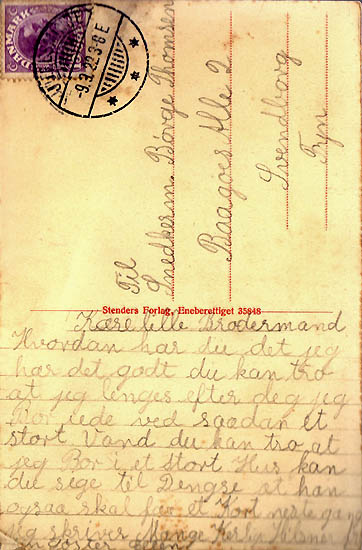 DANMARK
9.3.22. 3-8 E
Til
Snedkerm. Børge Thomsen
Baagøes Alle 2
Svendborg
Fyn
Stenders Forlag, Eneberettiget 35848
Kære lille Brodermand
Hvordan har du det jeg
har det godt du kan tro
at jeg lenges efter deg jeg
Bor nede ved saadan et
stort Vand du kan tro at
jeg Bor i et Stort Hus kan
du sege til Dengse at han
ogsaa skal får et Kort neste gang
jeg skriver Mange Kerlige Hilsner